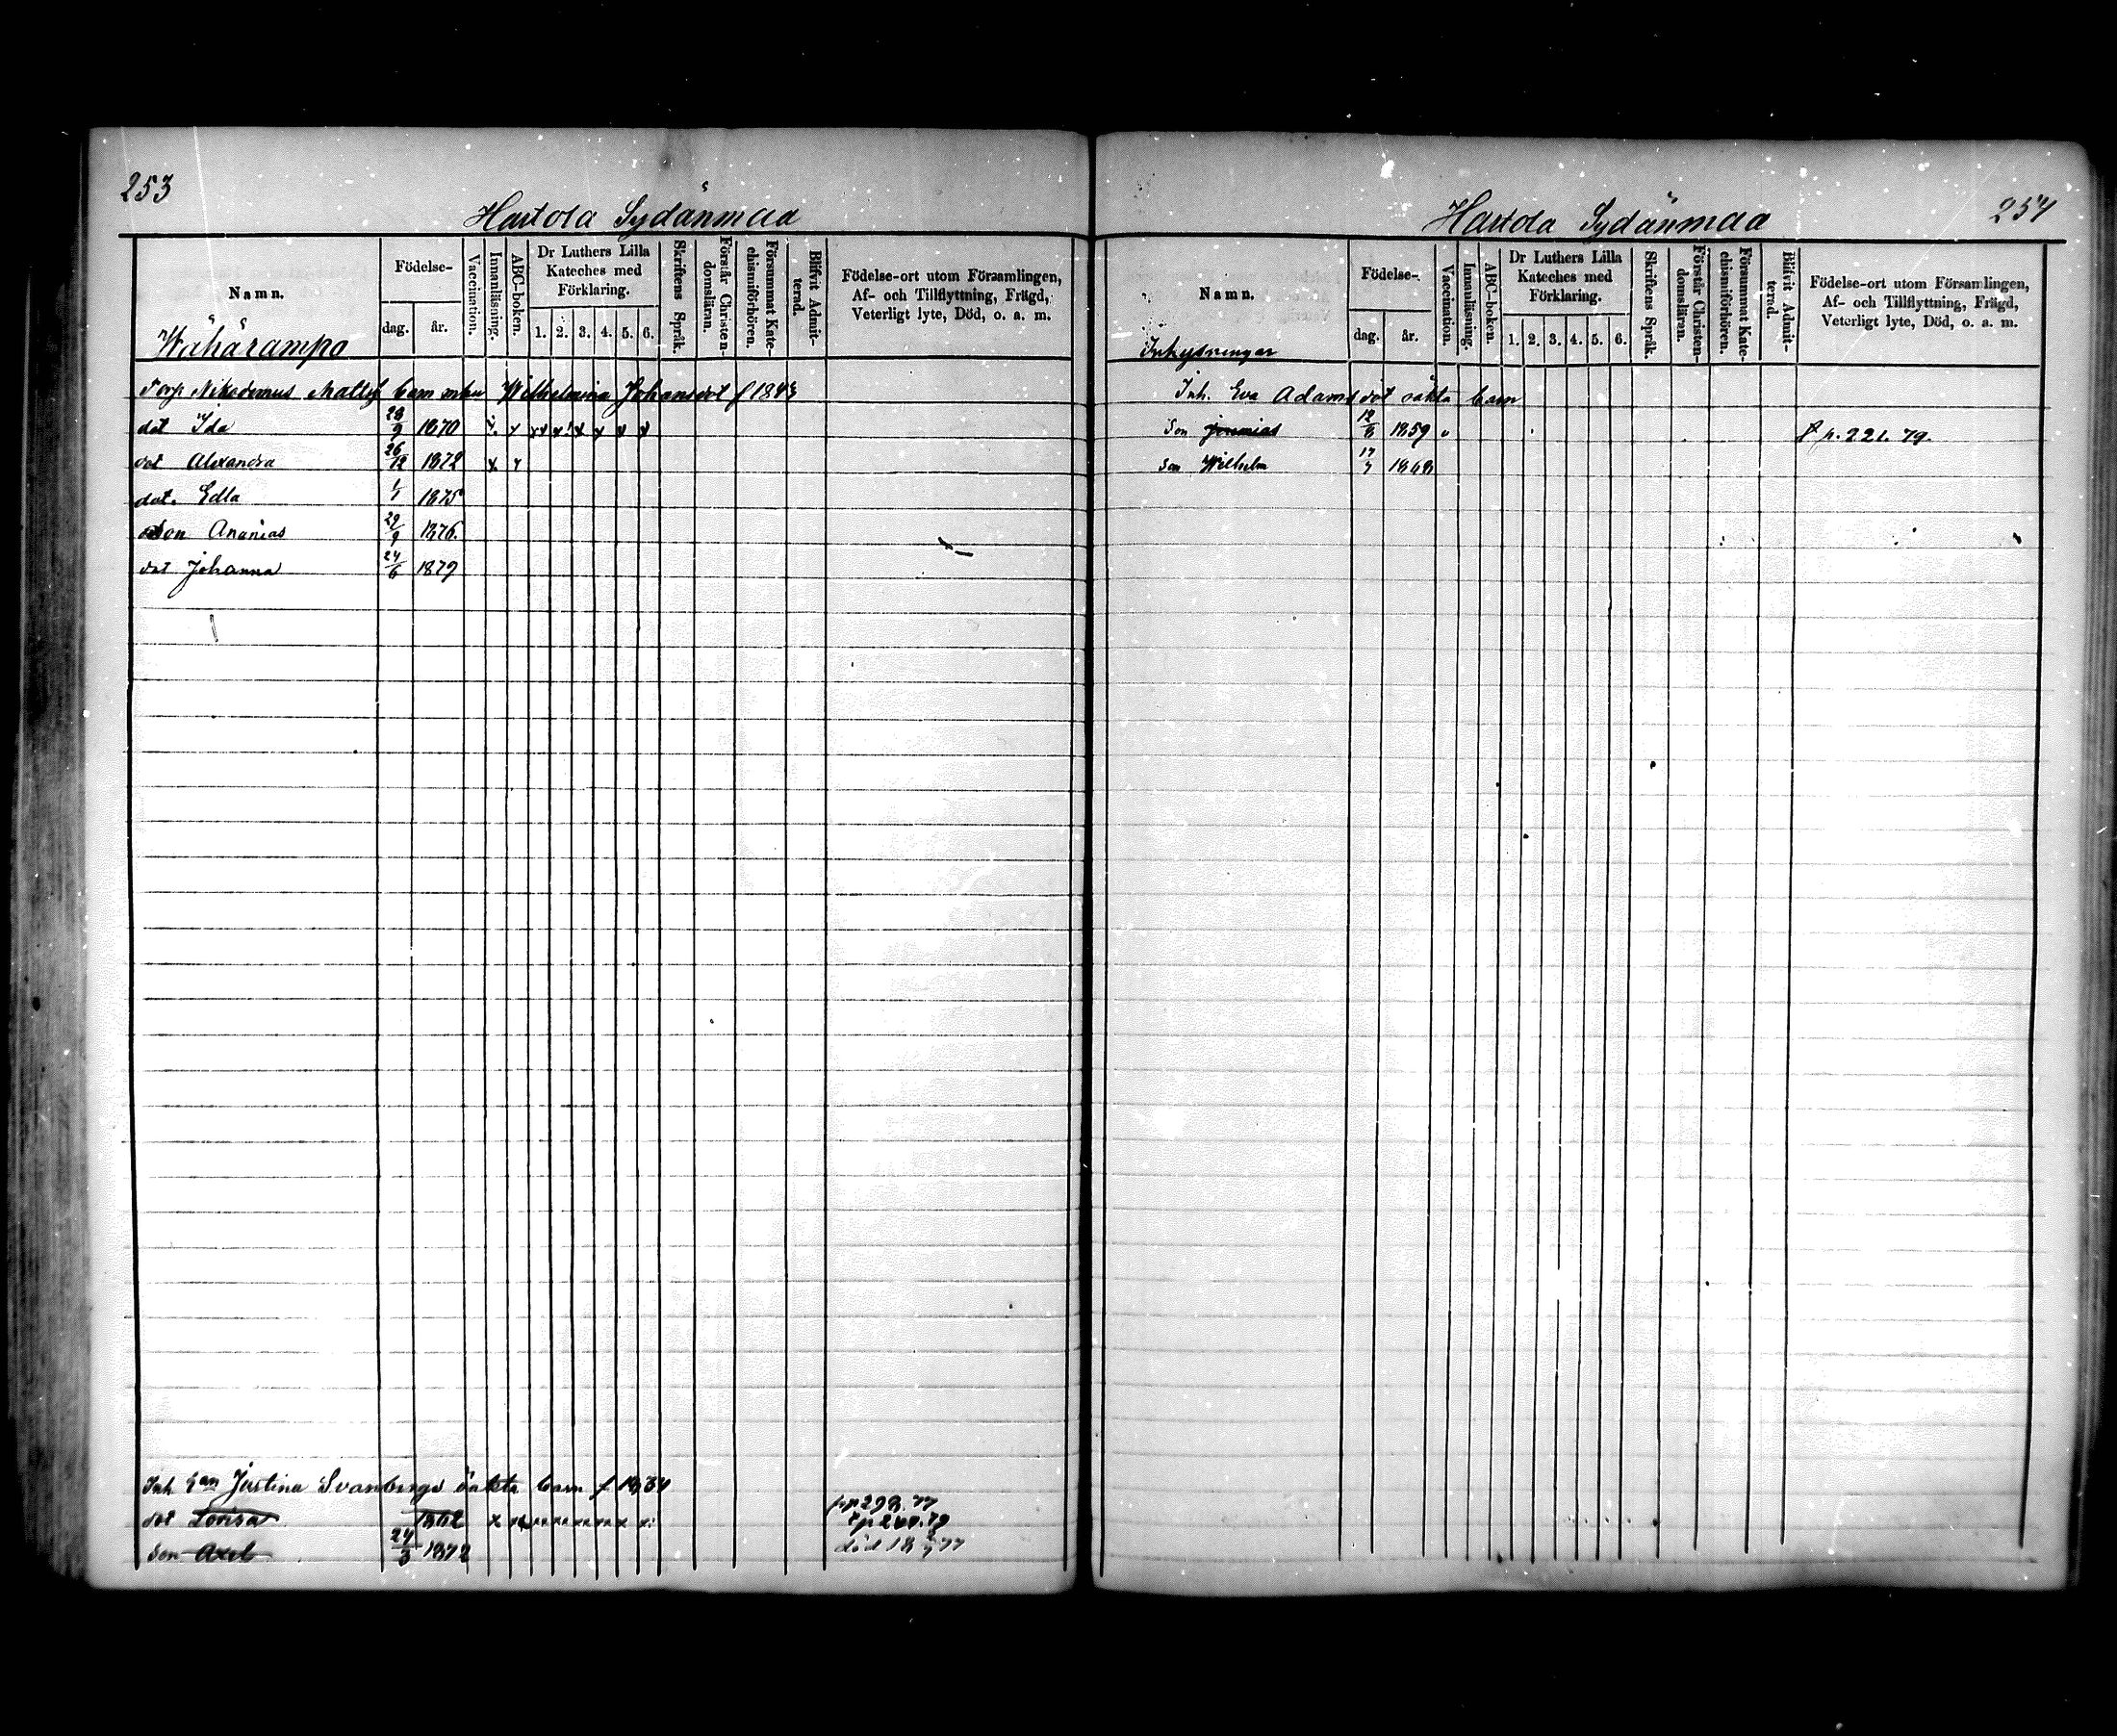 253
Hartola Sydänmaa
Namn.
Födelse-
dag.
år.
Vaccination.
Innanläsning.
ABC-boken.
Dr Luthers Lilla
Kateches med
Förklaring.
1. 2. 3. 4. 5. 6.
Skriftens Språk.
Förstår Christen-
domsläran.
Försummat Kate-
chismiförhören.
Blifvit Admit-
terad.
Födelse-ort utom Församlingen,
Af- och Tillflyttning, Frägd,
Veterligt lyte, Död, o. a. m.
Wähärampo
Torp Nikodemus Mattsf barn m hu Wilhelmina Johansdot f 1843
dot Ida 28/9 1870
dot Alexandra 26/12 1872 x
dot. Edla 1875
Son Ananias 22/9 1876.
dot Johanna 24/6 1879
Inh Justina Svanbergs oäkta barn f 1834
dot Lovisa 1862
p 298. 77
Son Axel 24/3 1872
död 18 77
254
Hartola Sydänmaa
Namn.
Födelse-
dag.
år.
Vaccination.
Innanläsning.
ABC-boken.
Dr Luthers Lilla
Kateches med
Förklaring.
1. 2. 3. 4. 5. 6.
Skriftens Språk.
Förstår Christen-
domsläran.
Försummat Kate-
chismiförhören.
Blifvit Admit-
terad.
Födelse-ort utom Församlingen,
Af- och Tillflyttning, Frägd,
Veterligt lyte, Död, o. a. m.
Inhysningar
Inh. Eva Adamsdot oäkta barn
Son Jeremias 12/8 1859 p. 221. 79.
Son Wilhelm 17/7 1868